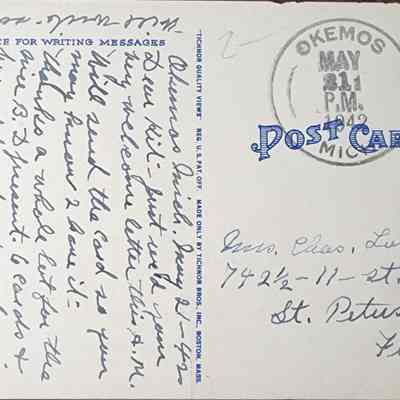 Will write so
CE FOR WRITING MESSAGES
Okemos Mich. May 21-42
Dear Kid - Just rec'd your
very welcome letter this A.M.
Will send the card so you
may know I have it -
Thanks a whole lot for the
nice B.D. present. 6 cards &
"TICHNOR QUALITY VIEWS" REG. U.S. PAT. OFF. MADE ONLY BY TICHNOR BROS., INC., BOSTON, MASS.
OKEMOS
MAY
21
P.M.
1942
MICH
POST CAR
Mrs. Chas. Lu
742½-11-st.
St. Peters